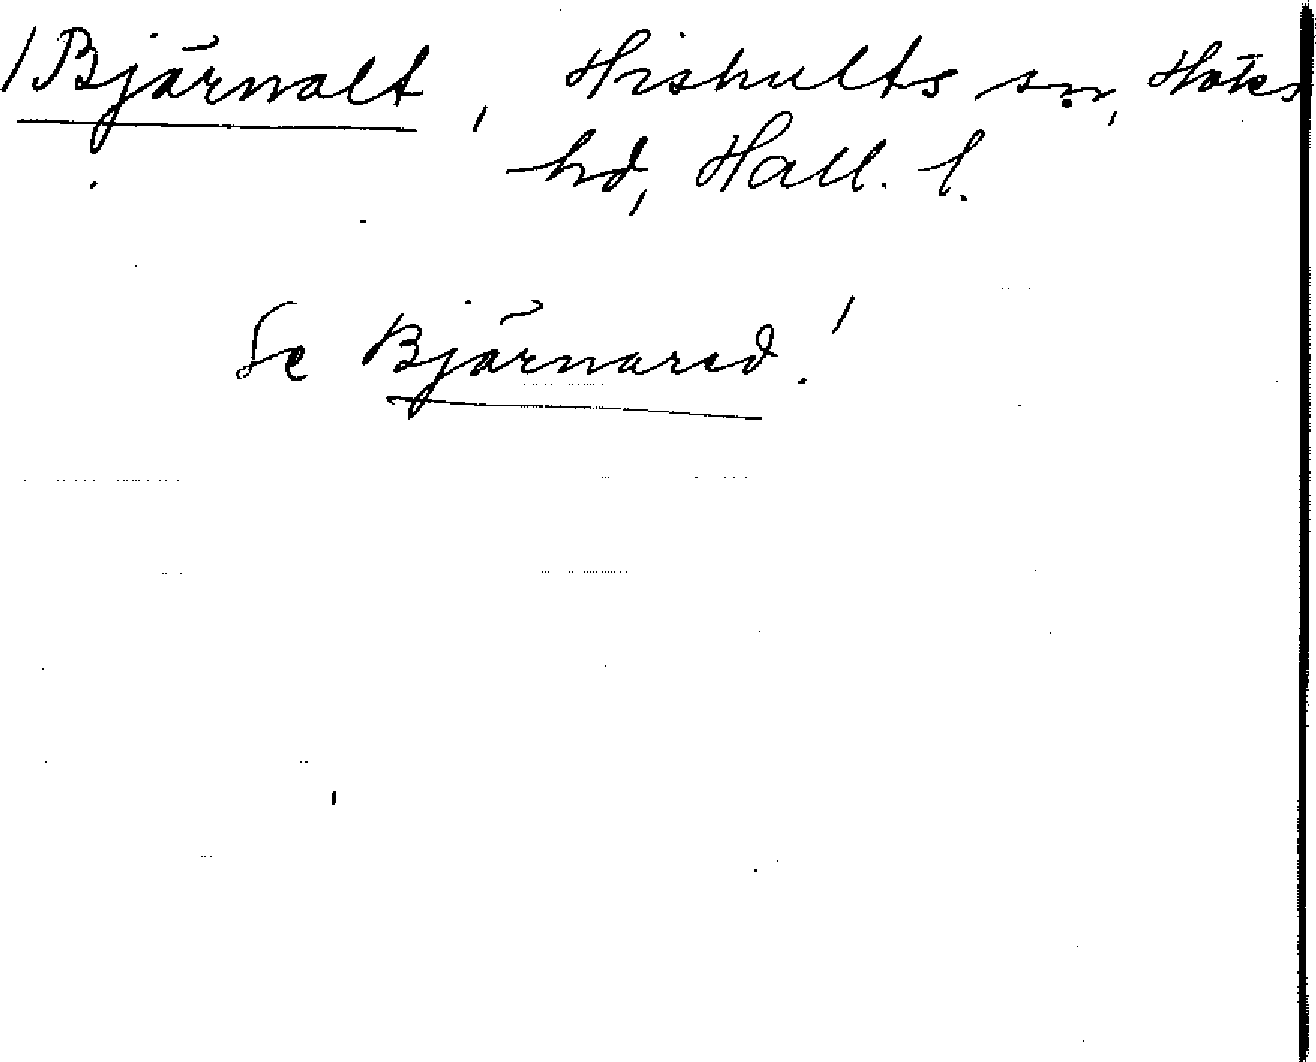 Bjärnalt, Hishults sn, Höks
hd, Hall. l.
Se Bjärnared!